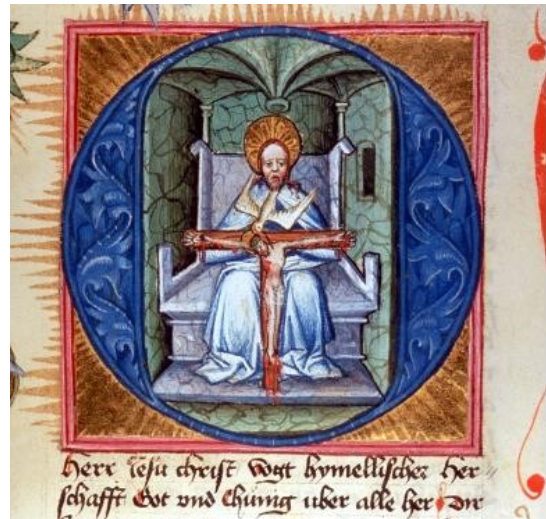 O
herr Jesu christ vogt hymellischer her⸗
schafft Got vnd chünig uber alle her Dir